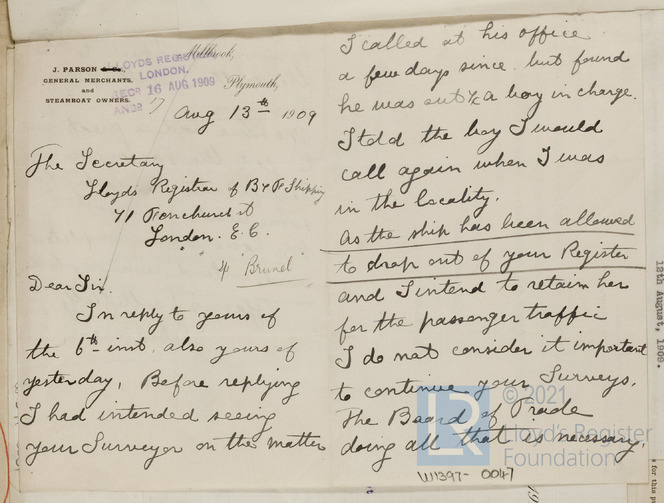 J. PARSON
GENERAL MERCHANTS,
and
STEAMBOAT OWNERS.
Millbrook,
Plymouth,
LLOYDS REG
LONDON.
RECD 16 AUG 1909
ANSD 17
Aug 13th 1909
The Secretary
Lloyds Registrar of B & F Shipping
71 Fenchurch St
London. E. C.
"Brunel"
Dear Sir.
In reply to yours of
the 6th inst, also yours of
yesterday, Before replying
I had intended seeing
your Surveyor on the matter
I called at his office
a few days since but found
he was out & a boy in charge.
I told the boy I would
call again when I was
in the locality.
As the ship has been allowed
to drop out of your Register
and I intend to retain her
for the passenger traffic
I do not consider it important
to continue your Surveys.
The Board of Trade
doing all that is necessary,
12th August, 1909.
for this p
LR
© 2021
Lloyd's Register
Foundation
W1397- 0047